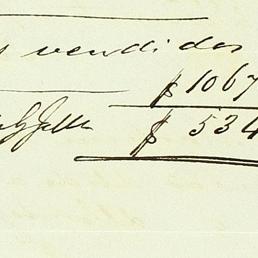 s vendidos
$ 1067
$ 534